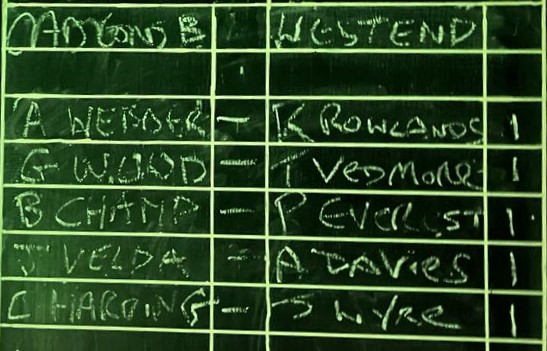 WESTEND
A WEBBER - K ROWLANDS 1
G WOOD - T VEDMORE 1
B CHAMP - P EVEREST 1
J VELDA - A DAVIES 1
C HARDING - J WYRE 1